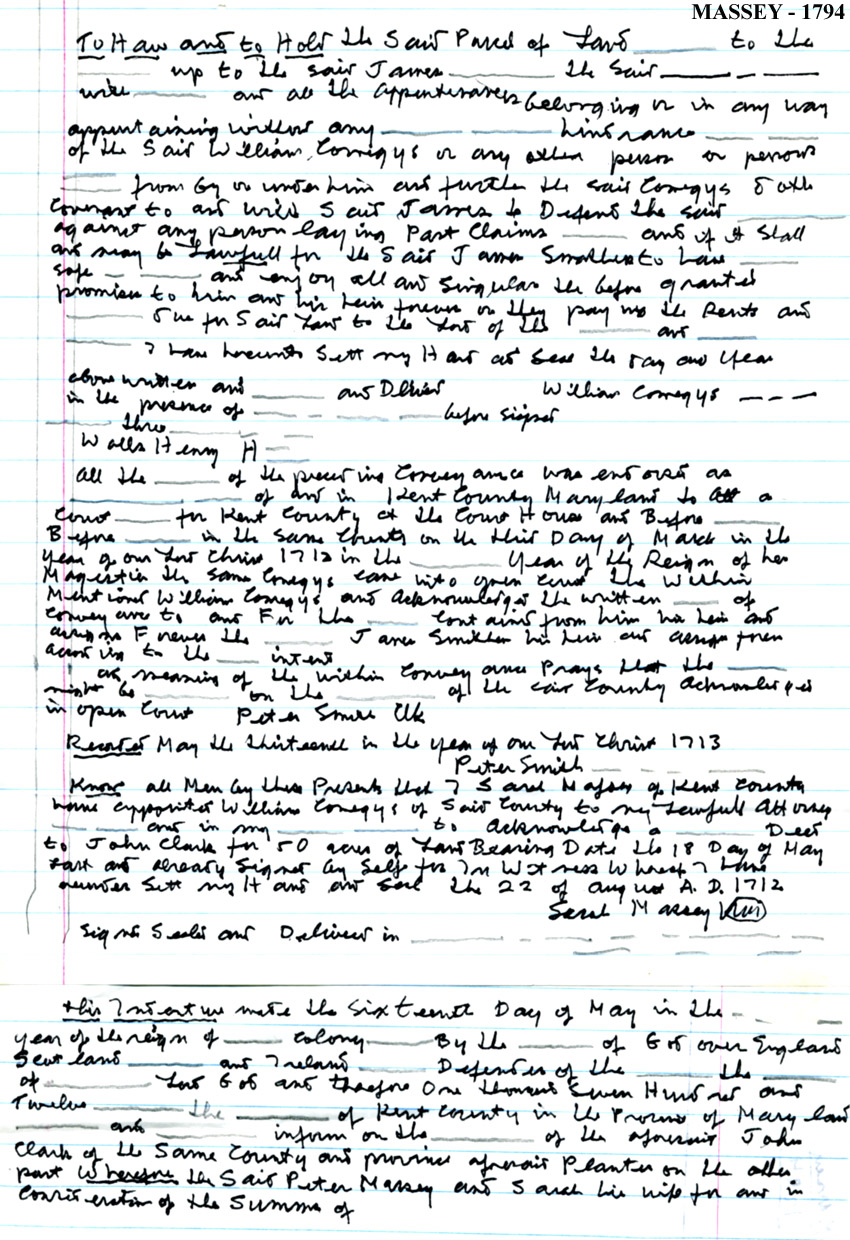 MASSEY - 1794
To Have and to Hold the Said Parcel of Land to the
up to the said James the said
with and all the Appertenances belonging or in any way
appertaining without any hindrance
of the Said William Comegys or any other person or persons
from by or under him and further the said Comegys doth
Covenant to and with Said James to Defend the said
against any person laying Part Claims and if it Shall
and may be Lawfull for the Said James Smither to have
safe and enjoy all and Singular the before granted
promises to him and his heirs forever or they pay the Rents and
due for Said Land to the Lord of the and
I have hereunto Sett my Hand and Seal the day and Year
above written and and Deliver William Comegys
in the presence of before signed
three
Walls Henry H
All the of the preceding Conveyance was endorsed as
of and in Kent County Maryland to Att a
Court for Kent County at the Court House and Before
Before in the Same County on the third Day of March in the
year of our Lord Christ 1712 in the Year of the Reign of her
Magesti in the Same Comegys came into open Court the Within
Mentioned William Comegys and Acknowledged the written of
Conveyance to and For the Containd from him his heirs and
assigns Forever the James Smither his heirs and assigns from
according to the intent
as meaning of the within Conveyance Prays that the
might be on the of the said County Acknowledged
in open Court Peter Smith Clk
Recorded May the thirteenth in the year of our Lord Christ 1713
Peter Smith
Know all Men by these Presents that I Sarah Massey of Kent County
have appointed William Comegys of Said County to my Lawfull Attorney
and in my to Acknowledge a Deed
to John Clark for 50 acres of Land Bearing Date the 18 Day of May
Last and already Signed by Self for In Witness Whereof I have
hereunder Sett my Hand and Seal the 22 of August A.D. 1712
Sarah Massey
Signed Sealed and Delivered in
this Indenture made the Sixteenth Day of May in the
year of the reign of Colony By the of God over England
Scotland and Ireland Defender of the the
of Lord God and therefore One thousand Seven Hundred and
Twelve the of Kent County in the Province of Maryland
and inform on the of the aforesaid John
Clark of the Same County and province aforesaid Planter on the other
part Wherefore the Said Peter Massey and Sarah his wife for and in
Consideration of the Summe of